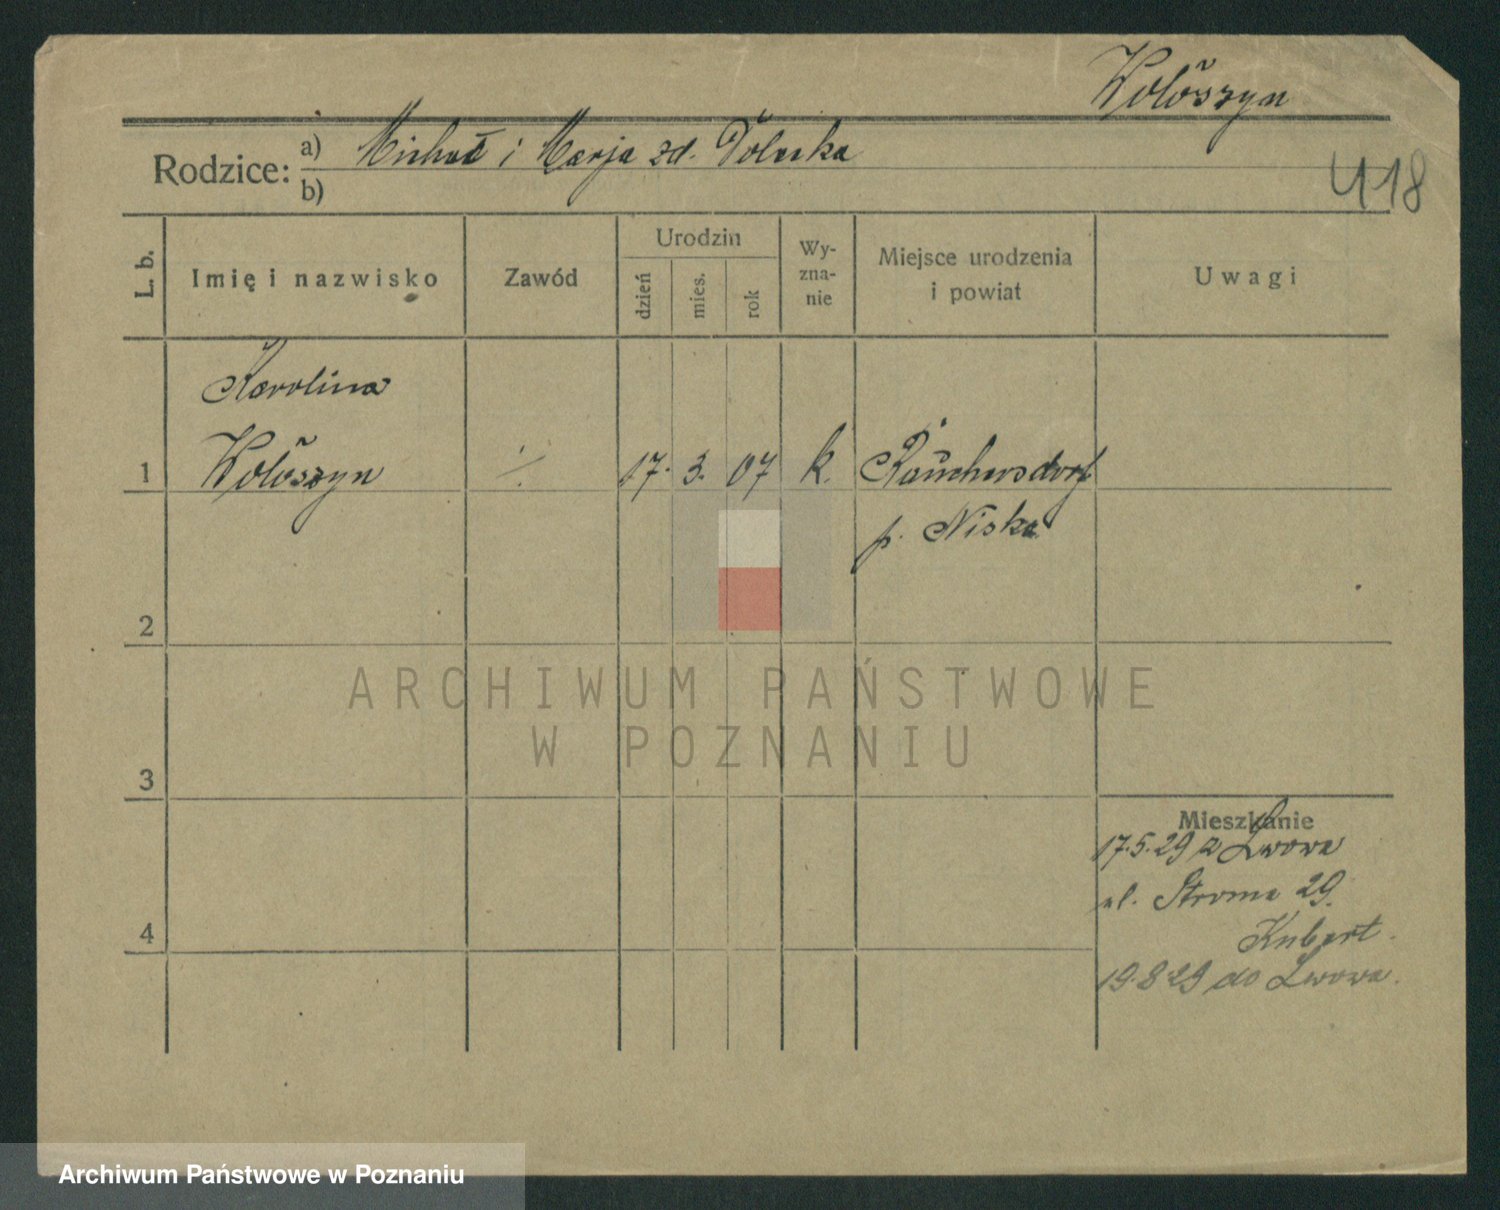 Wołoszyn
Rodzice: a) Michał i Marja zd.
b)
418
L. b.
Imię i nazwisko
Zawód
Urodzin
dzień
mies.
rok
Wy-
zna-
nie
Miejsce urodzenia
i powiat
Uwagi
Karolina
1 Wołoszyn ./. 17. 3. 07 k. Rauchersdorf
p. Niska
2
ARCHIWUM PAŃSTWOWE
W POZNANIU
3
Mieszkanie
17.5.29 z Lwowa
ul. Stroma 29.
Kubart.
4
19.8.29 do Lwowa.
Archiwum Państwowe w Poznaniu